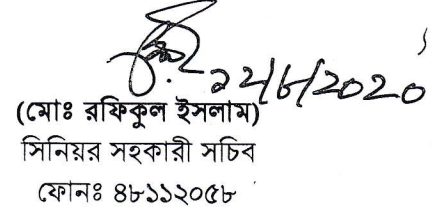 ২২/৬/২০২০
(মোঃ রফিকুল ইসলাম)
সিনিয়র সহকারী সচিব
ফোনঃ ৪৮১১২০৫৮